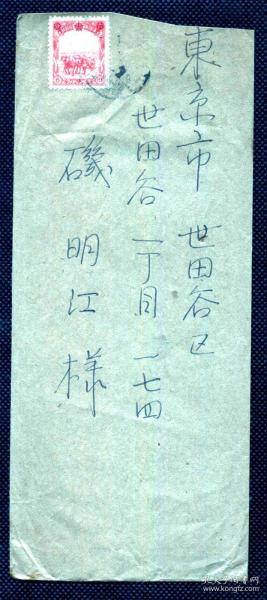 東京市 世田谷区
世田谷 一丁目 一七四
磯 明江 様
kongfz.com